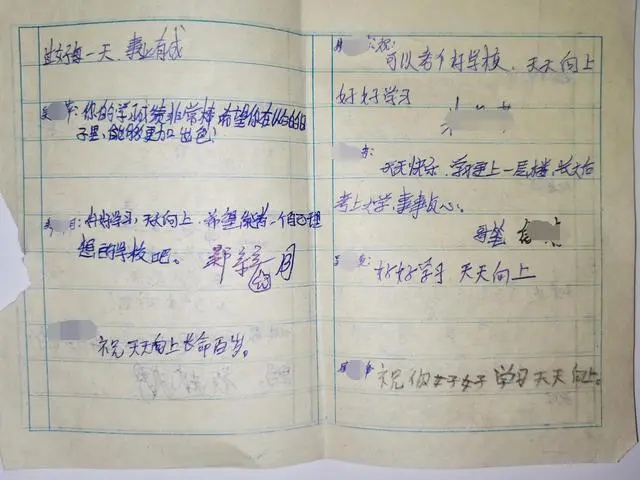 过好每一天、事业有成
你的学习成绩非常棒希望你在以后的日
子里,能够更加出色!
好好学习,天天向上,希望能考一个自己理
想的学校吧。
月
祝天天向上长命百岁。
祝:
可以考个好学校、天天向上
好好学习
天天快乐、学习更上一层楼、长大后
考上大学,事事
好好学习 天天向上
祝你好好学习天天向上。